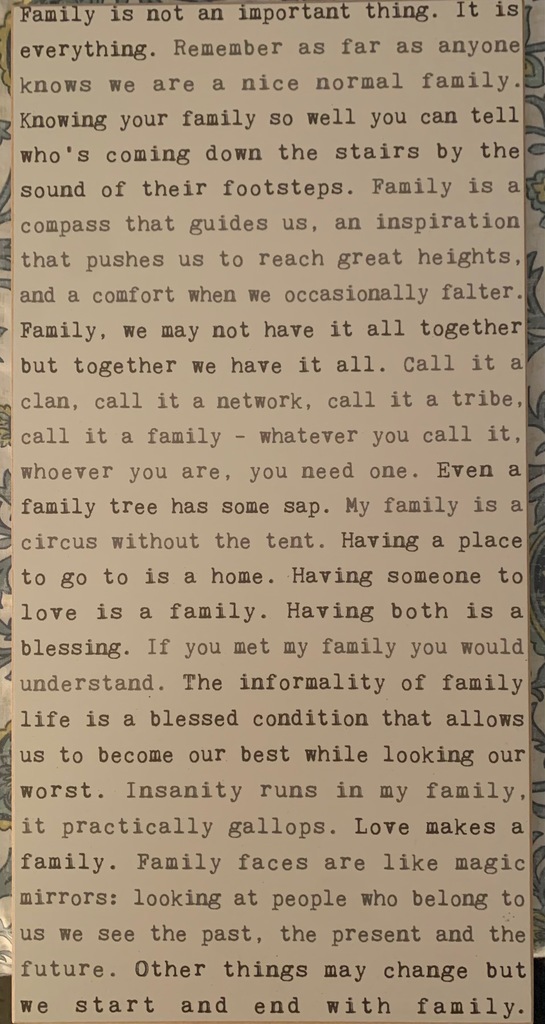 Family is not an important thing. It is
everything. Remember as far as anyone
knows we are a nice normal family.
Knowing your family so well you can tell
who's coming down the stairs by the
sound of their footsteps. Family is a
compass that guides us, an inspiration
that pushes us to reach great heights,
and a comfort when we occasionally falter.
Family, we may not have it all together
but together we have it all. Call it a
clan, call it a network, call it a tribe,
call it a family - whatever you call it,
whoever you are, you need one. Even a
family tree has some sap. My family is a
circus without the tent. Having a place
to go to is a home. Having someone to
love is a family. Having both is a
blessing. If you met my family you would
understand. The informality of family
life is a blessed condition that allows
us to become our best while looking our
worst. Insanity runs in my family,
it practically gallops. Love makes a
family. Family faces are like magic
mirrors: looking at people who belong to
us we see the past, the present and the
future. Other things may change but
we start and end with family.